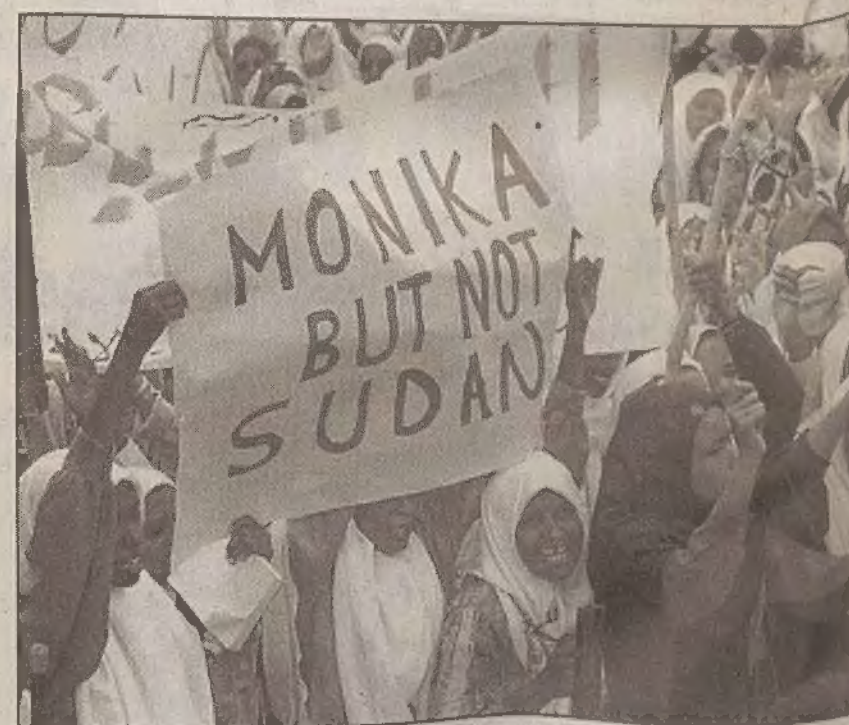 MONIKA
BUT NOT
SUDAN